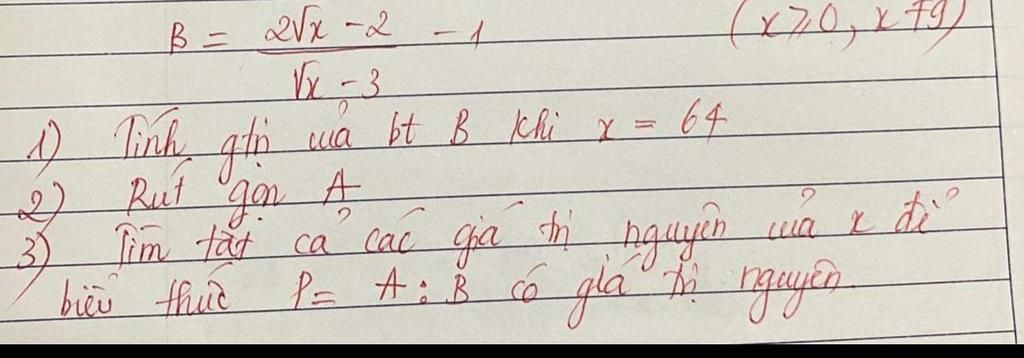 B = \frac{2\sqrt{x} - 2}{\sqrt{x} - 3} - 1 (x ≥ 0, x ≠ 9)
1) Tính gtrị của bt B khi x = 64
2) Rút gọn A
3) Tìm tất cả các giá trị nguyên của x để
biểu thức P = A : B có giá trị nguyên.